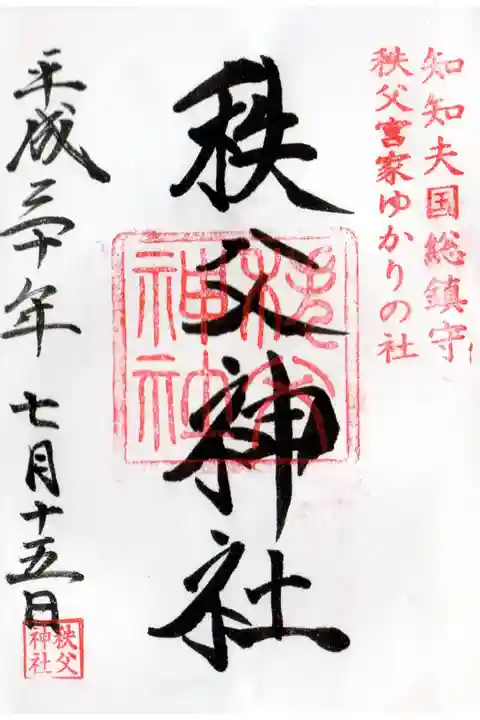 知知夫国総鎮守
秩父宮家ゆかりの社
秩父神社
秩父神社
平成三十年 七月十五日
秩父
神社